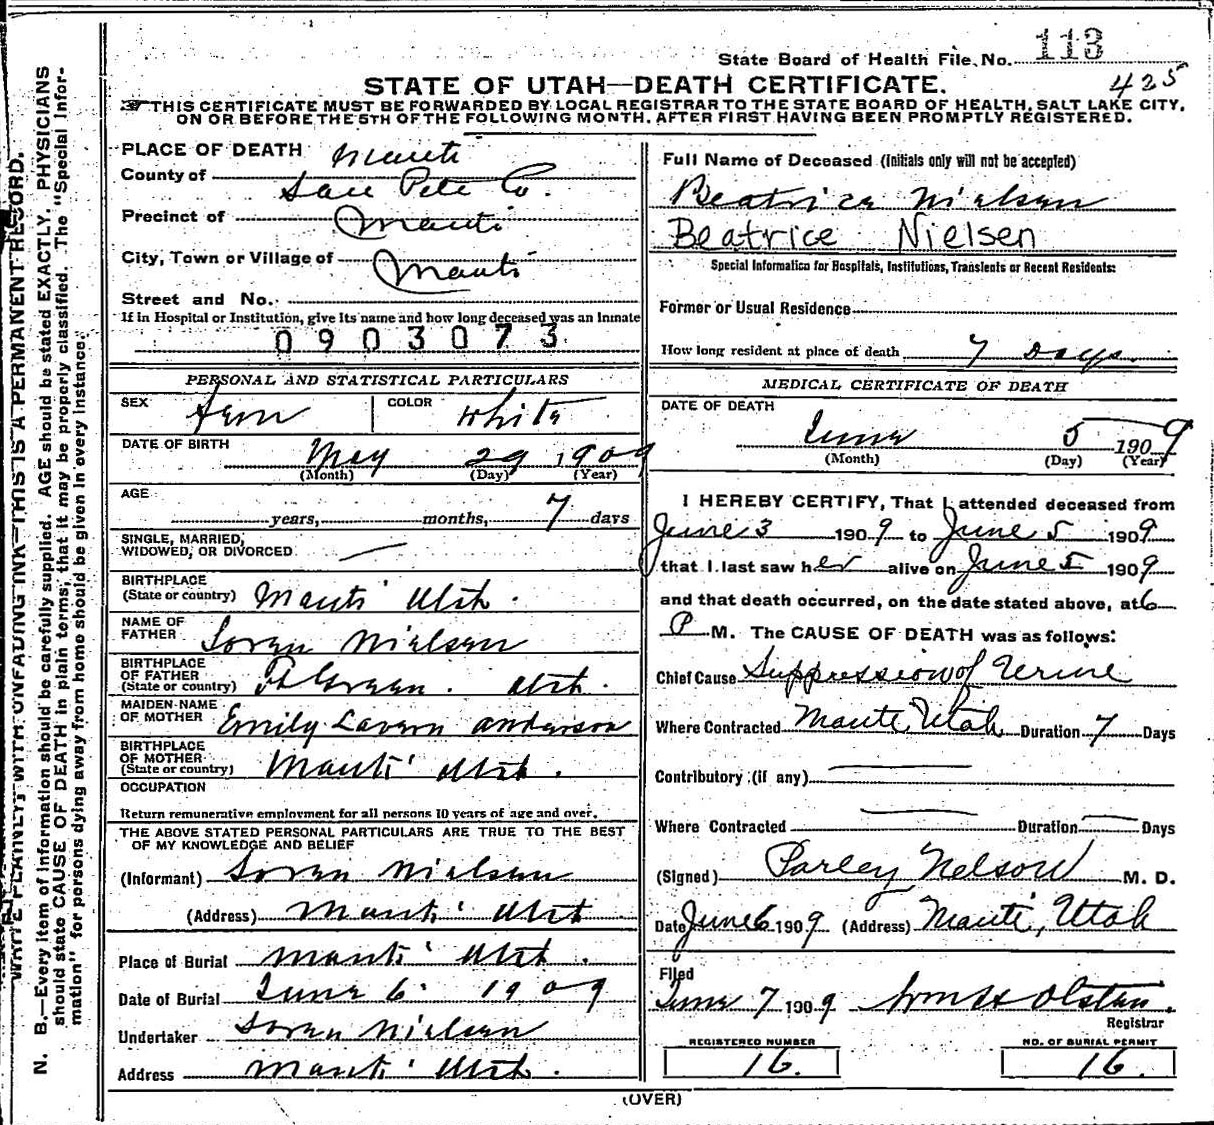 State Board of Health File. No. 113
STATE OF UTAH—DEATH CERTIFICATE.
425
THIS CERTIFICATE MUST BE FORWARDED BY LOCAL REGISTRAR TO THE STATE BOARD OF HEALTH, SALT LAKE CITY,
ON OR BEFORE THE 5TH OF THE FOLLOWING MONTH, AFTER FIRST HAVING BEEN PROMPTLY REGISTERED.
WRITE PLAINLY WITH UNFADING INK—THIS IS A PERMANENT RECORD.
N. B.—Every item of information should be carefully supplied. AGE should be stated EXACTLY. PHYSICIANS
should state CAUSE OF DEATH in plain terms, that it may be properly classified. The "Special Infor-
mation" for persons dying away from home should be given in every instance.
PLACE OF DEATH Manti
County of San Pete Co.
Precinct of Manti
City, Town or Village of Manti
Street and No.
If in Hospital or Institution, give its name and how long deceased was an inmate
0903073
PERSONAL AND STATISTICAL PARTICULARS
SEX Fem COLOR White
DATE OF BIRTH May 29 1909
(Month) (Day) (Year)
AGE
years, months, 7 days
SINGLE, MARRIED,
WIDOWED, OR DIVORCED
BIRTHPLACE
(State or country) Manti Utah.
NAME OF
FATHER Soren Nielsen
BIRTHPLACE
OF FATHER
(State or country) Ft Green. Utah.
MAIDEN NAME
OF MOTHER Emily Lavern Anderson
BIRTHPLACE
OF MOTHER
(State or country) Manti Utah.
OCCUPATION
Return remunerative employment for all persons 10 years of age and over.
THE ABOVE STATED PERSONAL PARTICULARS ARE TRUE TO THE BEST
OF MY KNOWLEDGE AND BELIEF
(Informant) Soren Nielsen
(Address) Manti Utah
Place of Burial Manti Utah.
Date of Burial June 6 1909
Undertaker Soren Nielsen
Address Manti Utah.
Full Name of Deceased (Initials only will not be accepted)
Beatrice Nielsen
Beatrice Nielsen
Special Information for Hospitals, Institutions, Transients or Recent Residents:
Former or Usual Residence
How long resident at place of death 7 Days.
MEDICAL CERTIFICATE OF DEATH
DATE OF DEATH
June 5 1909
(Month) (Day) (Year)
I HEREBY CERTIFY, That I attended deceased from
June 3 1909 to June 5 1909
that I last saw her alive on June 5 1909
and that death occurred, on the date stated above, at 6
P M. The CAUSE OF DEATH was as follows:
Chief Cause Suppression of Urine
Where Contracted Manti, Utah Duration 7 Days
Contributory (if any)
Where Contracted Duration Days
(Signed) Parley Nelson M. D.
Date June 6 1909 (Address) Manti, Utah
Filed
June 7 1909 Wm H Olsten.
Registrar
REGISTERED NUMBER
16.
NO. OF BURIAL PERMIT
16.
(OVER)